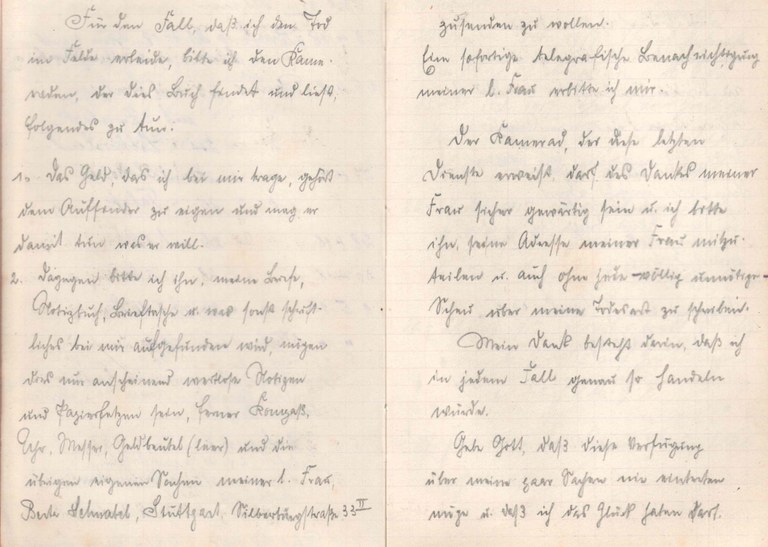 Für den Fall, daß ich den Tod
im Felde erleide, bitte ich den Kame-
raden, der dies Buch findet und liest,
folgendes zu tun.
1. Das Geld, das ich bei mir trage, gehört
dem Auffinder zu eigen und mag er
damit tun was er will.
2. Dagegen bitte ich ihn, meine Briefe,
Notizbuch, Brieftasche u. was sonst schrift-
liches bei mir aufgefunden wird, mögen
dies nur anscheinend wertlose Notizen
und Papierfetzen sein, ferner Kompaß,
Uhr, Messer, Geldbeutel (leer) und die
übrigen eigenen Sachen meiner l. Frau,
Stuttgart, Silberburgstraße 33 II
zusenden zu wollen.
Eine sofortige telegrafische Benachrichtigung
meiner l. Frau erbitte ich mir.
Der Kamerad, der diese letzten
Dienste erweist, darf des Dankes meiner
Frau sicher gewärtig sein u. ich bitte
ihn, seine Adresse meiner Frau mitzu-
teilen u. auch ohne jede – völlig unnötige –
Scheu über meine Todesart zu schreiben.
Mein Dank besteht darin, daß ich
in jedem Fall genau so handeln
würde.
Gebe Gott, daß diese Verfügung
über meine paar Sachen nie eintreten
möge u. daß ich das Glück haben darf.